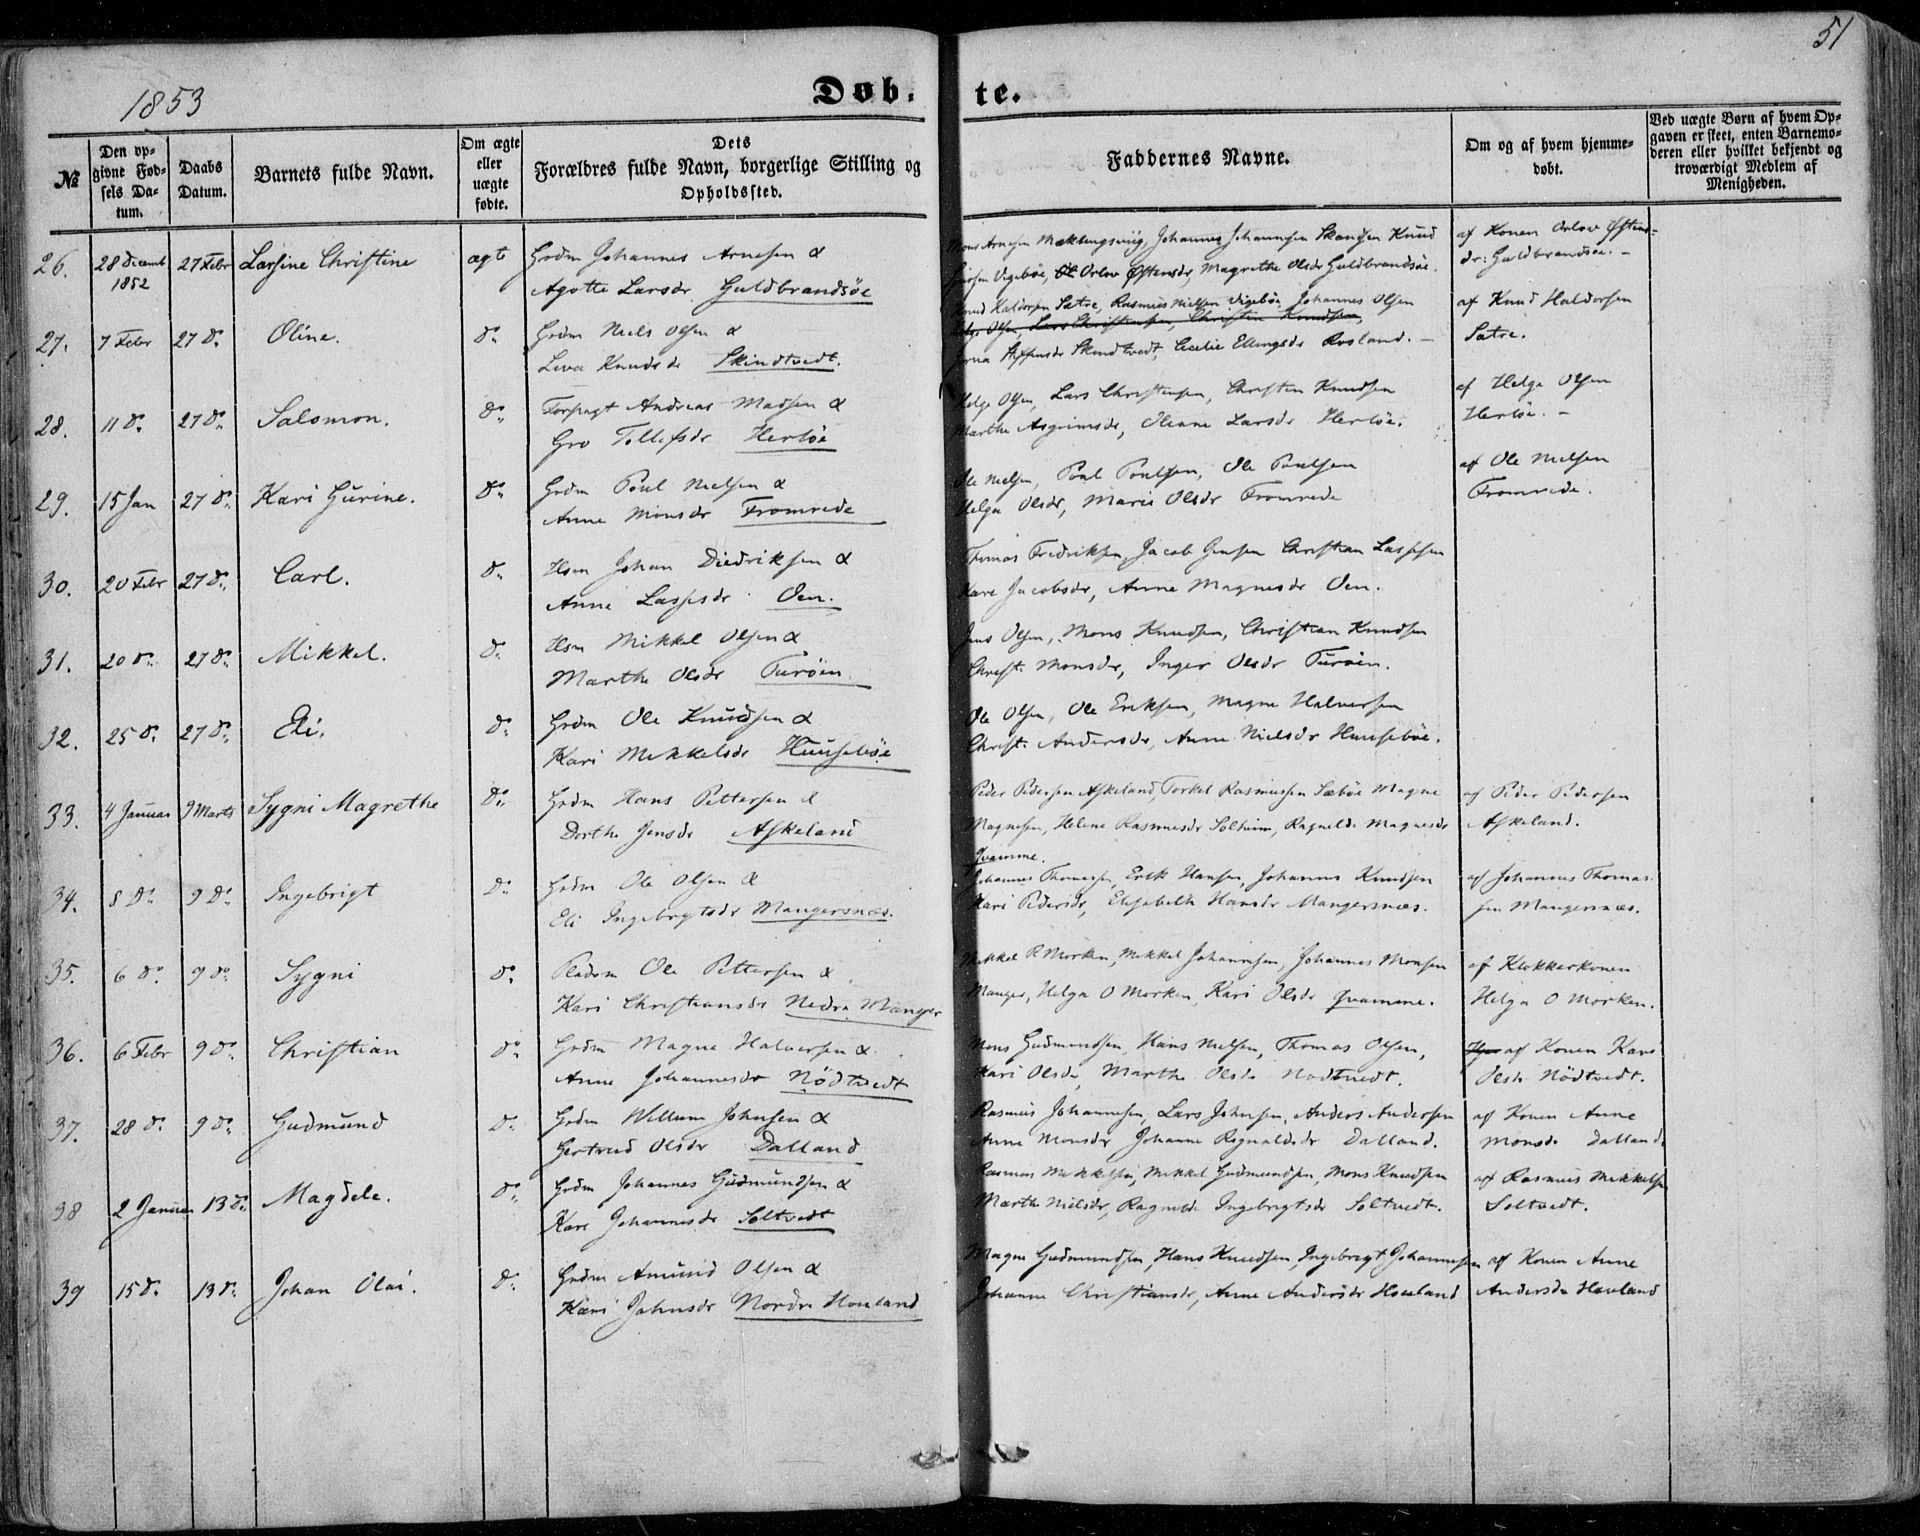 51
1853
Døb. te.
№
Den opgivne Fødsels Datum.
Daabs Datum.
Barnets fulde Navn.
Om ægte eller uægte fødte.
Dets Forældres fulde Navn, borgerlige Stilling og Opholdssted.
Faddernes Navne.
Om og af hvem hjemmedøbt.
Ved uægte Børn af hvem Opgaven er skeet, enten Barnemoderen eller hvilket bekjendt og troværdigt Medlem af Menigheden.
26. 28 Decemb 27 Febr Larsine Christine ægte Grdm Johannes Arnesen &
1852 Agotte Larsdr Guldbrandsöe
Mons Arnesen Johannes Johannesen Knud
Vigebøe, Orlov Østensdr, Magrethe Olsdr Guldbrandsöe.
af Konen Orlov Østens-
dr: Guldbrandsöe. -
27. 7 Febr 27 do. Oline. do. Grdm Niels Olsen &
Knudsdr Skindtvedt.
Knud Haldorsen Satre, Rasmus Nielsen Vigebøe, Johannes Olsen
Helge Olsen, Lars Christensen, Christen Knudsen,
Skindtvedt, Cecilie Ellingsdr Rosland. -
af Knud Haldorsen
Satre.
28. 11 do. 27 do. Salomon. do. Andreas Madsen &
Gro Tollefsdr Herlöe
Helge Olsen, Lars Christensen, Christen Knudsen
Marthe Asgrimsdr, Olenne Larsdr Herlöe.
af Helge Olsen
Herlöe. -
29. 15 Jan 27 do. Kari Gurine. do. Grdm Poul Nielsen &
Anne Monsdr Fromrede
Ole Nielsen, Poul Poulsen, Ole Poulsen
Helga Olsdr, Maris Olsdr Fromrede
af Ole Nielsen
Fromrede.
30. 20 Febr 27 do. Carl. do. Hsm Johan Diedriksen &
Anne Lassesdr Oen.
Thomas Fredriksen, Jacob Jensen Christian Lassesen
Kare Jacobsdr, Anne Magnesdr Oen.
31. 20 do. 27 do. Mikkel. do. Hsm Mikkel Olsen &
Marthe Olsdr Turöen.
Jens Olsen, Mons Knudsen, Christian Knudsen
Christ: Monsdr, Inger Olsdr Turöen.
32. 25 do. 27 do. Eli. do. Grdm Ole Knudsen &
Kari Mikkelsdr Huusebøe
Ole Olsen, Ole Eriksen, Magne Halversen
Christ: Andersdr, Anne Nielsdr Huusebøe.
33. 4 Januar 9 Marts Sygni Magrethe do. Grdm Hans Pettersen &
Dorthe Jensdr Askeland
Peder Pedersen Askeland, Torkel Rasmussen Sæbøe Magne
Magnesen, Helene Rasmusdr Solheim, Ragnilde Magnesdr
Qvamme.
af Peder Pedersen
Askeland.
34. 8 do 9 do. Ingebrigt do. Grdm Ole Olsen &
Eli Ingebrigtsdr Mangersnæs.
Johannes Thomesen, Erik Hansen, Johannes Knudsen
Kari Pedersdr, Elisabeth Hansdr Mangersnæs.
af Johannes Thomas-
sen Mangersnæs.
35. 6 do. 9 do Sygni do. Pladsm Ole Pettersen &
Kari Christiansdr Nedre Manger
Mikkel R Morken, Mikkel Johannesen, Johannes Monsen
Manger, Helga O Morken, Kari Olsdr Qvamme.
af Klokkerkonen
Helga O Morken.
36. 6 Febr 9 do. Christian do. Grdm Magne Halversen &
Anne Johannesdr Nödtvedt
Mons Gudmundsen, Hans Nielsen, Thomas Olsen,
Kari Olsdr, Marthe Olsdr Nodtvedt.
af Konen Kari
Olsdr Nödtvedt.
37. 28 do. 9 do. Gudmund do. Grdm Willum Johnsen &
Gertrud Olsdr Dalland
Rasmus Johannesen, Lars Johnsen, Anders Andersen
Anne Monsdr Johanne Regnaldsdr Dalland.
af Konen Anne
Monsdr Dalland.
38 2 Januar 13 do. Magdele. do. Grdm Johannes Gudmundsen &
Kare Johannesdr Soltvedt
Rasmus Mikkelsen, Mikkel Gudmundsen, Mons Knudsen
Marthe Nielsdr, Ragnilde Ingebrigtsdr Soltvedt.
af Rasmus Mikkelsen
Soltvedt.
39 15 do. 13 do. Johan Olai. do. Grdm Amund Olsen &
Kari Johnsdr Nordre Houland
Magne Gudmundsen, Hans Knudsen, Ingebrigt Johannesen
Johanne Christiansdr, Anne Andersdr Houland
af Konen Anne
Andersdr Houland